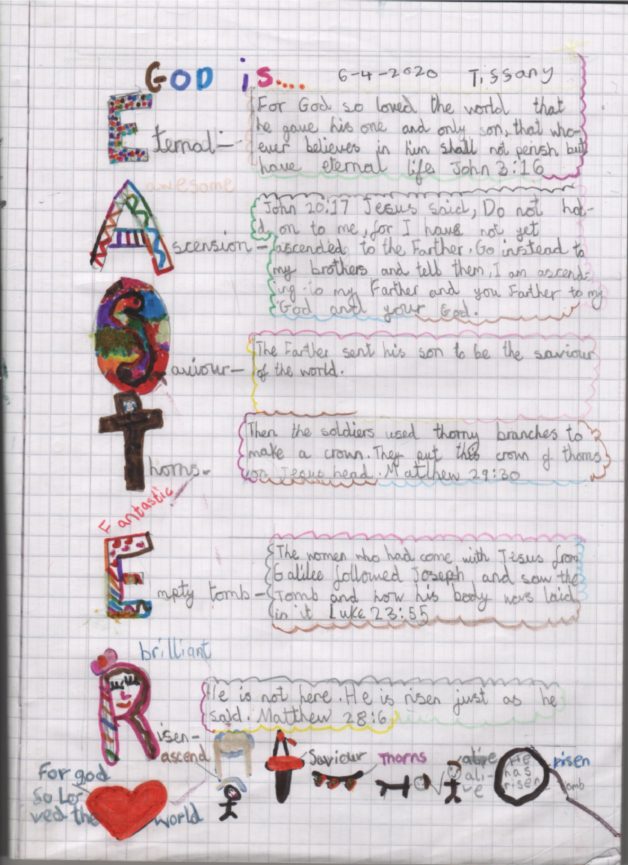 GOD is.... 6-4-2020 Tissany
Eternal-
For God so loved the world that
he gave his one and only son, that who-
ever believes in him shall not perish but
have eternal life. John 3:16
awesome
Ascension-
John 20:17 Jesus said, Do not hol-
d on to me, for I have not yet
ascended to the Farther. Go instead to
my brothers and tell them, I am ascend-
ing to my Farther and you Farther to my
God and your God.
Saviour-
The Farther sent his son to be the saviour
of the world.
Thorns-
Then the soldiers used thorny branches to
make a crown. They put this crown of thorns
on Jesus head. Matthew 29:30
Fantastic
Empty tomb-
The women who had come with Jesus from
Galilee followed Joseph and saw the
Tomb and how his body was laid
in it Luke 23:55
brilliant
Risen-
He is not here. He is risen just as he
said. Matthew 28:6
ascend
Saviour
Thorns
alive
ali-
ve
He
has
risen
risen
tomb
For god
so lo
ved the
world